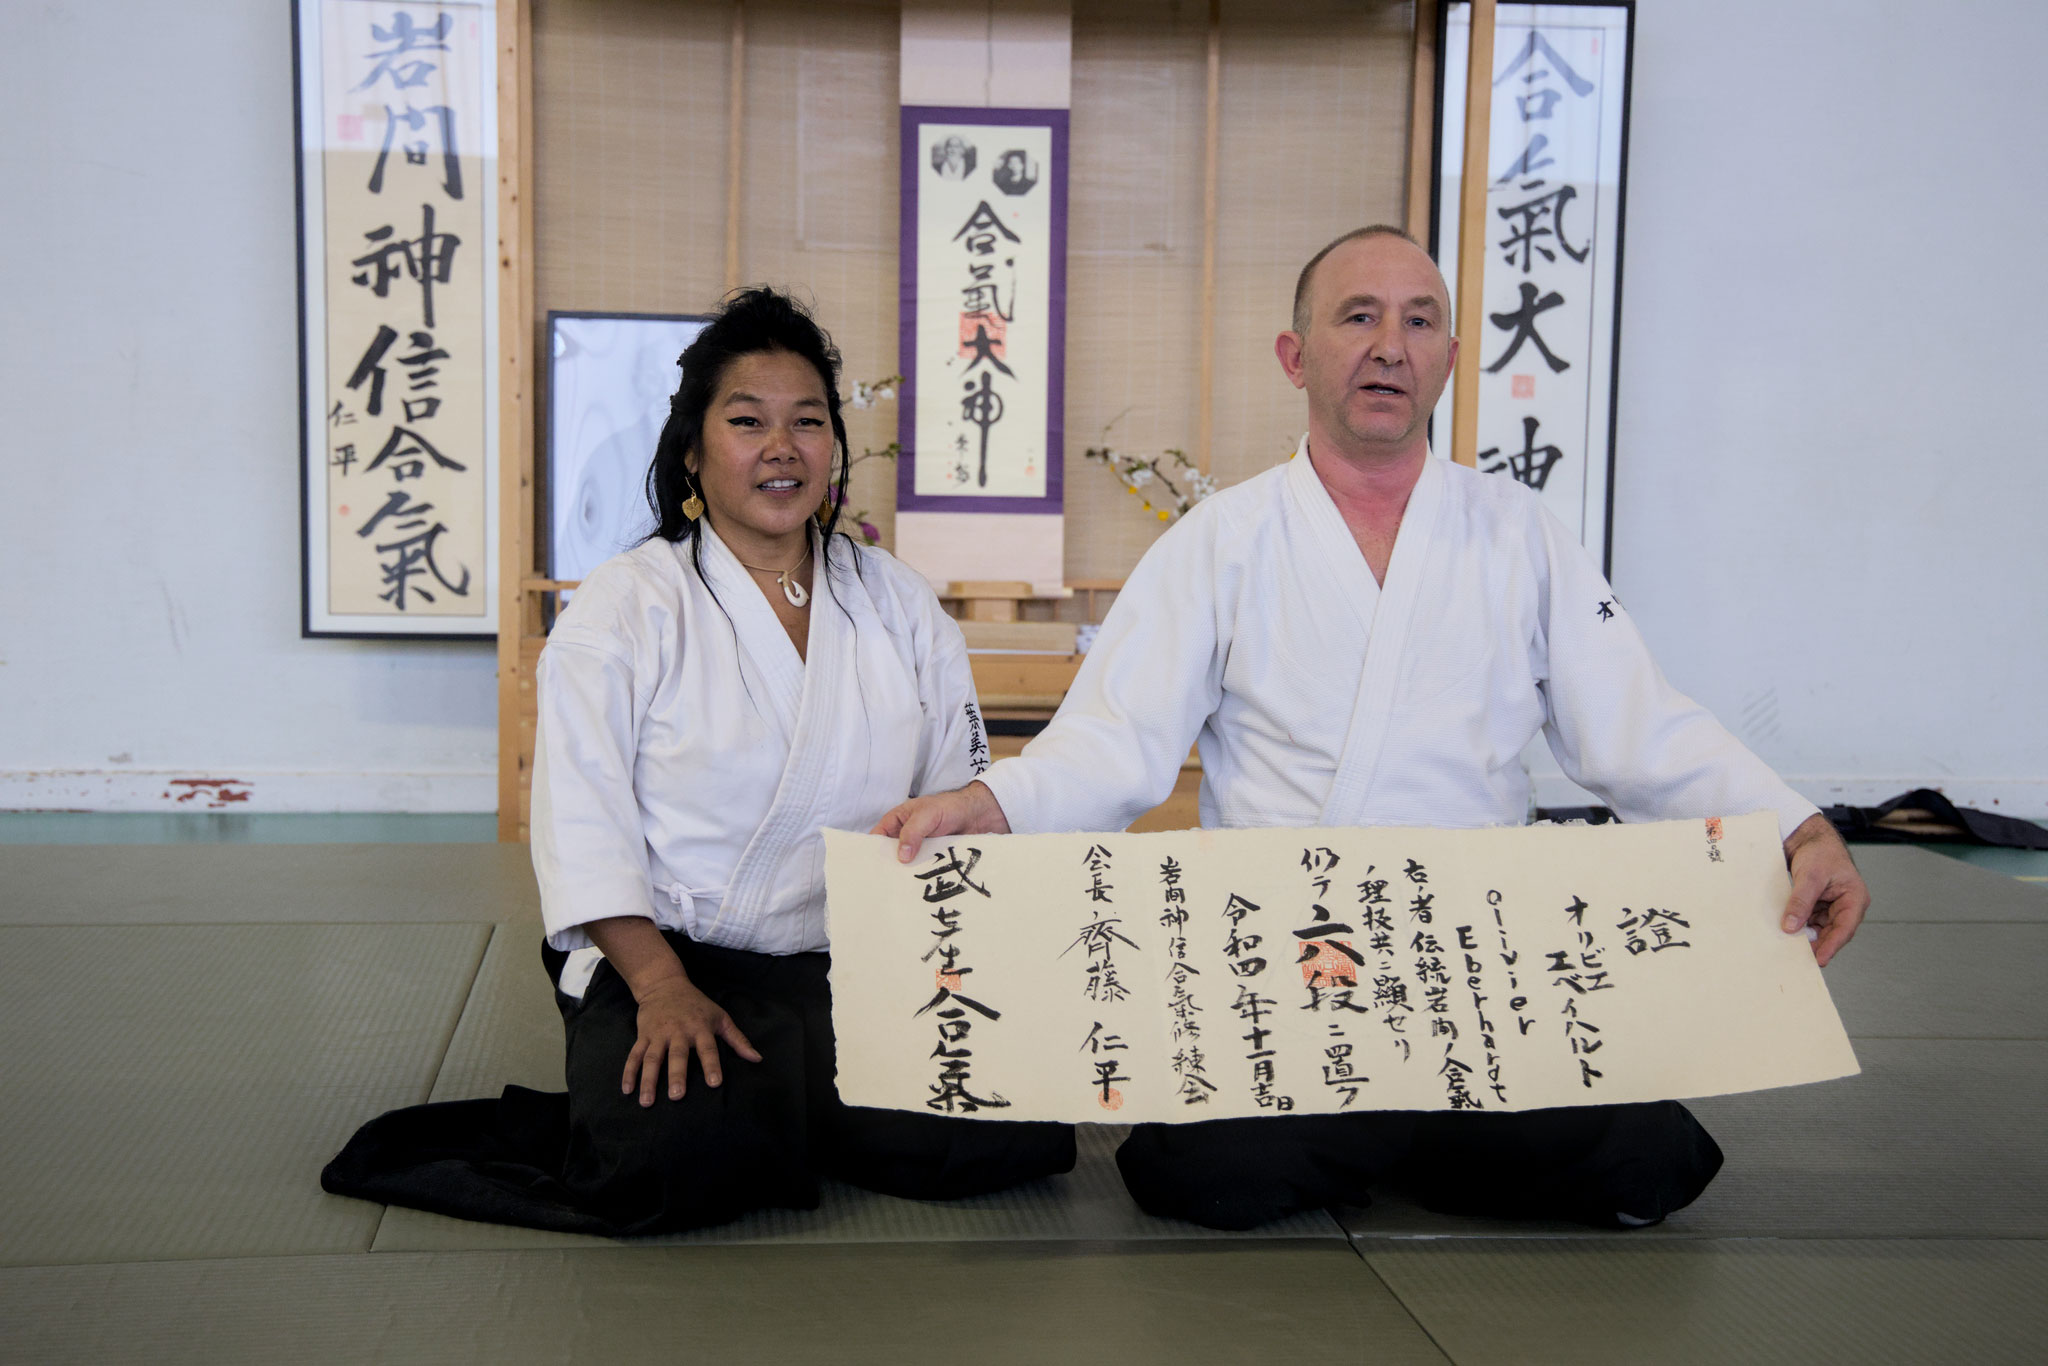 岩間神信合氣
仁平
合氣大神
合氣大神
葉美
證
オリビエ
エベイハルト
Olivier
Eberhardt
右ノ者伝統岩間ノ合氣
ノ理技共ニ顕セリ
仍テ六段ニ置ク
令和四年十一月吉日
岩間神信合氣修練会
会長 齊藤 仁平
武产合氣